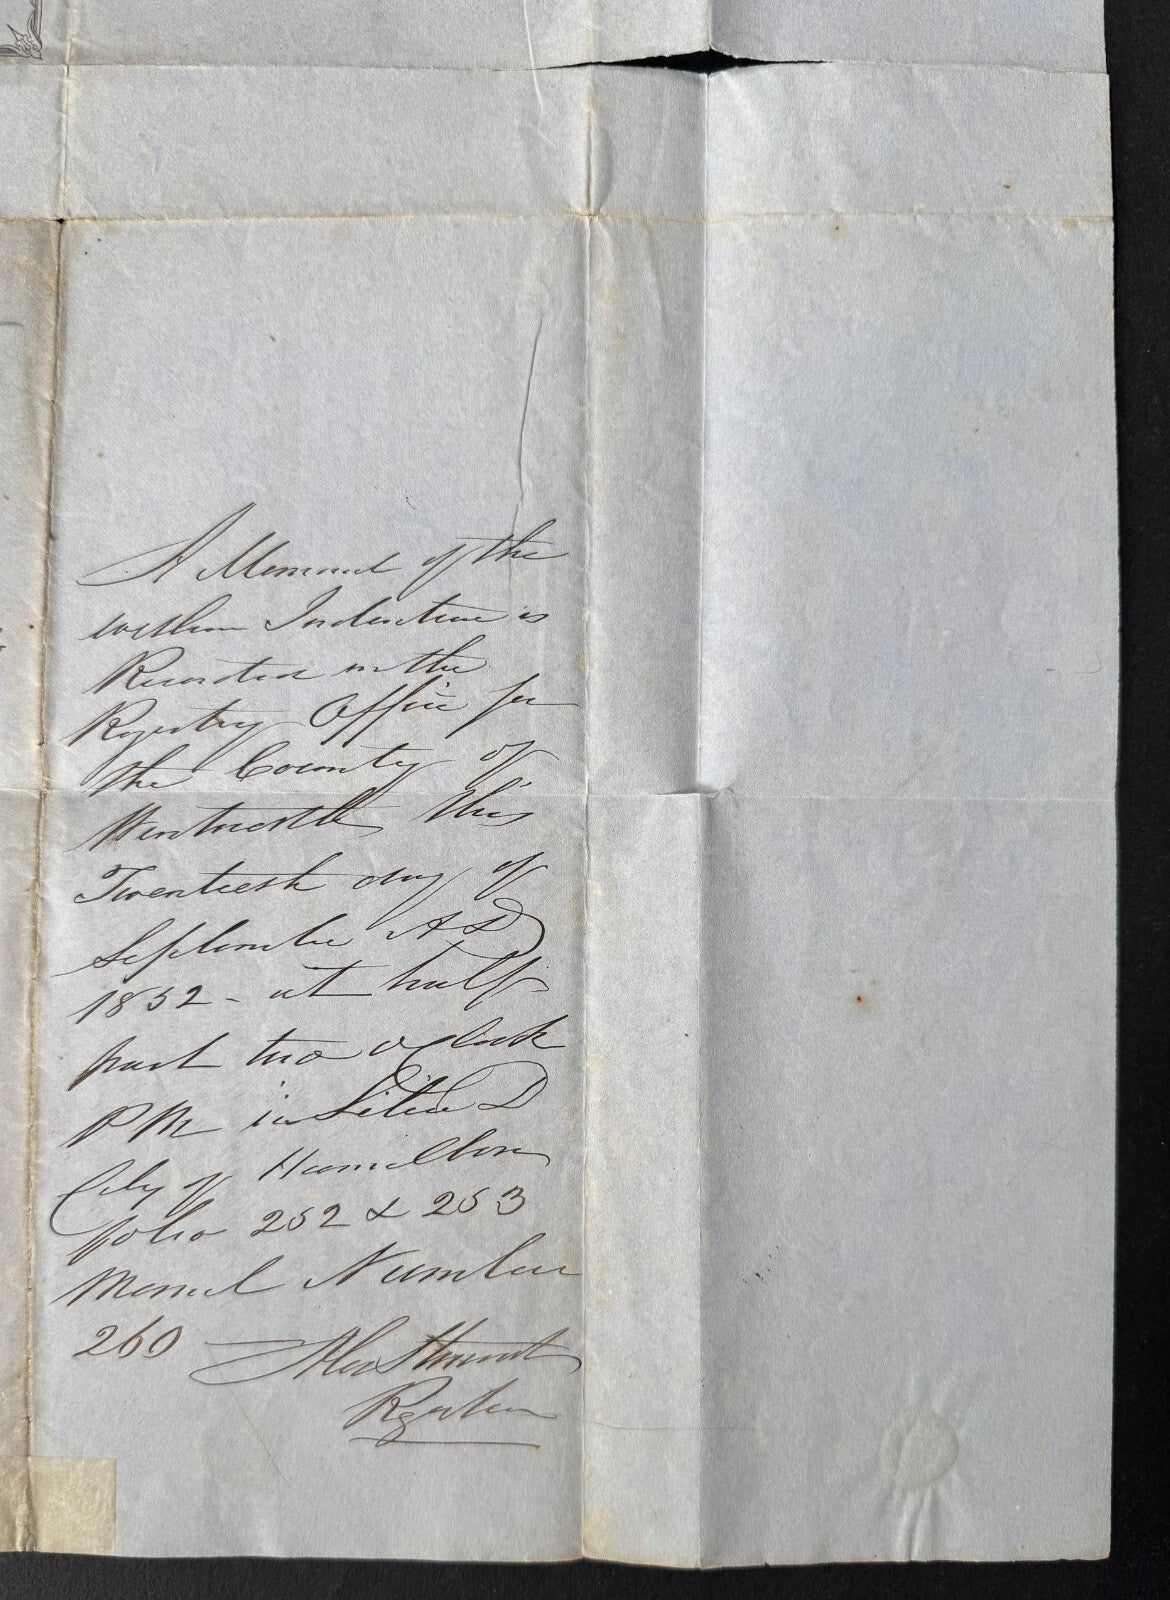 A Memorial of the
within Indenture is
Recorded in the
Registry Office for
the County of
Wentworth this
Twentieth day of
September A D
1852 - at half
past two o'Clock
P M in Liber D
City of Hamilton
folio 252 & 253
Memorial Number
260 Alex Stewart
Registrar